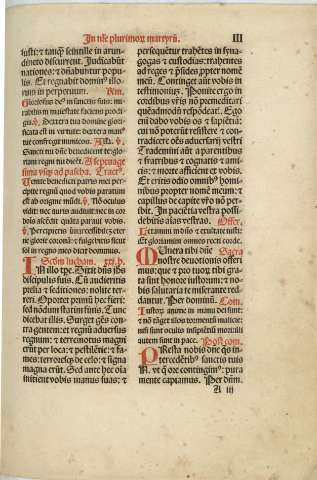 In nr̃e plurimoꝝ martyrũ.
III
iusti: ⁊ tanq̃ scintille in arun
dineto discurrent. Iudicabũt
nationes: ⁊ dñabuntur popu
lis. Et regnabit domin⁹ illo
rum in perpetuum.
Gloriosus de⁹ in sanctis suis: mi
rabilis in maiestate faciens prodi
gia. ℣. Dextera tua domine glorifi
cata est in virtute: dextera ma⁹
tua confregit inimicos. Alľa. ℣.
Gaudete iusti
regni tui dicent. A septuage
sima vsq̨ ad pascha. Tract⁹.
Venite benedicti patris mei per
cipite regnũ quod vobis paratum
est ab origine mũdi. ℣. Nõ oculus
vidit: nec auris audiuit: nec in cor
ascẽdit: que parata vobis.
℣. Percipietis ter
ne glorie coronã: ⁊ fulgebitis sicut
sol in regno meo dicit dominus.
Scḋm lucham. xxi. b.
In illo tp̃e. Dixit dñs iħs
discipulis suis. Cũ audieritis
prelia ⁊ seditiones: nolite ter
reri. Oportet primũ hec fieri:
sed nõdum statim finis. Tunc
dicebat illis. Surget gẽs con
tra gentem: et regnũ aduersus
regnum: ⁊ terremotus magni
erunt per loca: ⁊ pestilẽtie: ⁊ fa
mes: terroresq̨ de celo: ⁊ signa
magna erũt. Sed ante hec oĩa
inijcient vobis manus suas: ⁊
persequẽtur trahẽtes in syna
gogas ⁊ custodias: trahentes
ad reges ⁊ p̃sides ꝓpter nomẽ
meũ. Continget aũt vobis in
testimoniuz. Ponite ergo in
cordibus vr̃is nõ premeditari
quẽadmodũ respõdeat̃. Ego
em̃ dabo vobis os ⁊ sapiẽtiã:
cui nõ poterũt resistere ⁊ con
tradicere oẽs aduersarij vestri
Trademini aũt a parentibus
⁊ fratribus ⁊ cognatis ⁊ ami
cis: ⁊ morte afficient ex vobis.
Et eritis odio omnib⁹ homi
nibus propter nomẽ meum: ⁊
capillus de capite vr̃o nõ per
ibit. In paciẽtia vestra possi
debitis aĩas vestras. Offer.
Letamini in domino ⁊ exultate iusti:
Et gloriamini omnes recti corde.
Munera tibi dñe Sacra
nostre deuotionis offeri
mus: que ⁊ pro tuoꝝ tibi gra
ta sint honore iustorum: ⁊ no
bis salutaria te miserante red
dantur. Per dominũ. Com.
Iustorum anime in manu dei sunt:
⁊ nõ tãget illos tormentũ malicie:
visi sunt oculis insipiẽtiũ mori: illi
autem sunt in pace. Postcom.
Presta nobis dñe q̃s in
tercedẽtib⁹ sanctis tuis
N. vt q̃ ore contingim⁹: pura
mente capiamus. Per dñm.
A iii